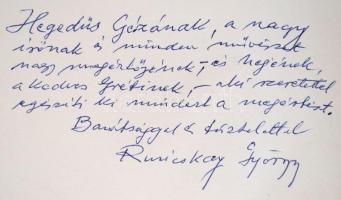 Hegedüs Gézának, a nagy
írónak és minden művészet
nagy megértőjének, – és nejének,
a kedves Gretinek, – aki szeretettel
egészíti ki mindezt a megértést.
Barátsággel és tisztelettel
Ruzicskay György